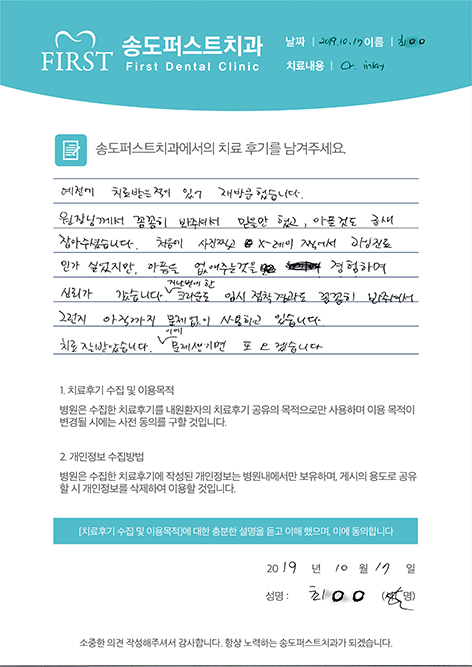 FIRST
송도퍼스트치과
First Dental Clinic
날짜 | 2019.10.17 이름 | 최OO
치료내용 | Cr. inlay
송도퍼스트치과에서의 치료 후기를 남겨주세요.
예전에 치료받은적이 있어 재방문했습니다.
원장님께서 꼼꼼히 봐주셔서 믿을만 했고, 아픈것도 금새
잡아주셨습니다. 처음에 사진찍고 X-레이 찍어서 과잉진료
인가 싶었지만, 아픔을 없애주는것을 경험하며
신뢰가 갔습니다 지난번에 한 크라운도 임시 접착 경과도 꼼꼼히 봐주셔서
그런지 아직까지 문제없이 사용하고 있습니다.
치료 잘받았습니다. 이에 문제생기면 또 오겠습니다
1. 치료후기 수집 및 이용목적
병원은 수집한 치료후기를 내원환자의 치료후기 공유의 목적으로만 사용하며 이용 목적이
변경될 시에는 사전 동의를 구할 것입니다.
2. 개인정보 수집방법
병원은 수집한 치료후기에 작성된 개인정보는 병원내에서만 보유하며, 게시의 용도로 공유
할 시 개인정보를 삭제하여 이용할 것입니다.
[치료후기 수집 및 이용목적]에 대한 충분한 설명을 듣고 이해 했으며, 이에 동의합니다
2019 년 10 월 17 일
성명 : 최OO (서명)
소중한 의견 작성해주셔서 감사합니다. 항상 노력하는 송도퍼스트치과가 되겠습니다.